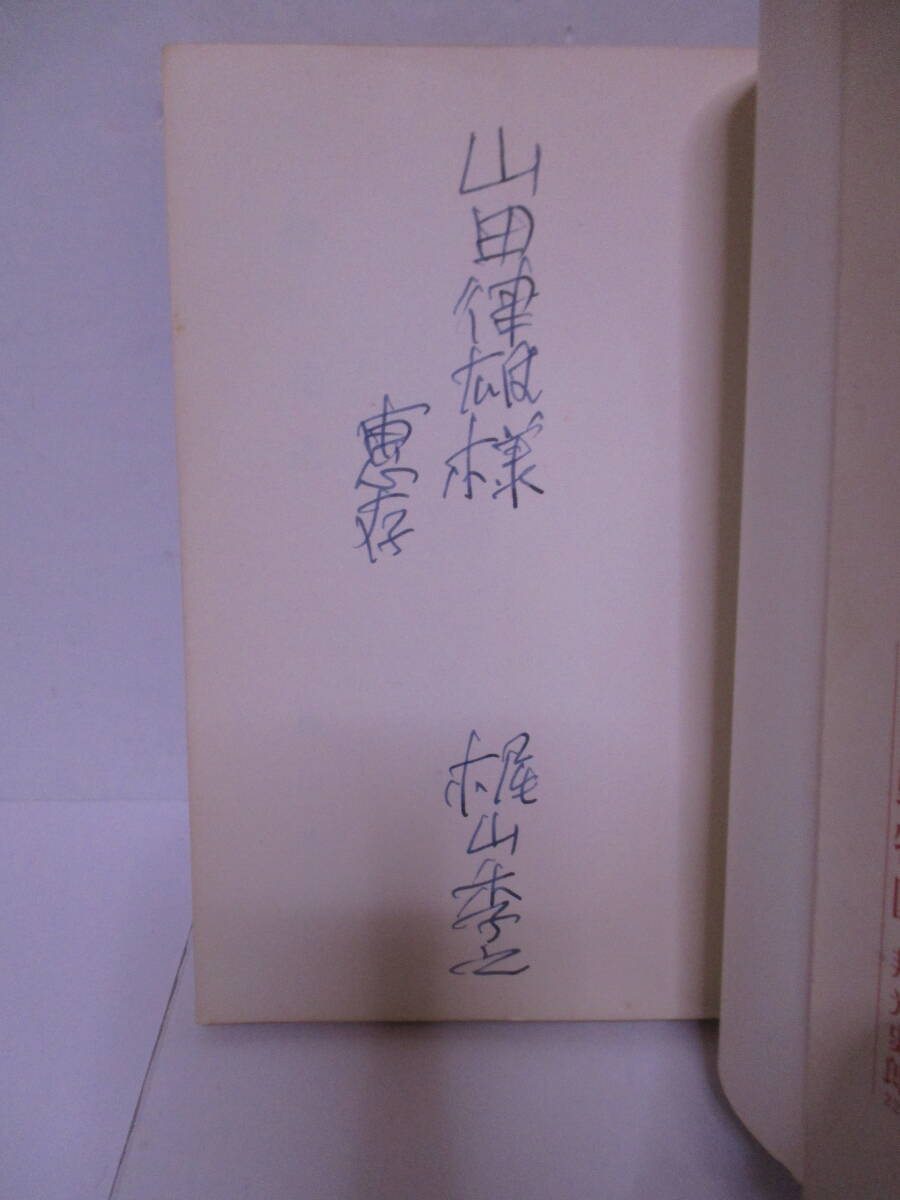 山田律雄様
恵存
梶山季之